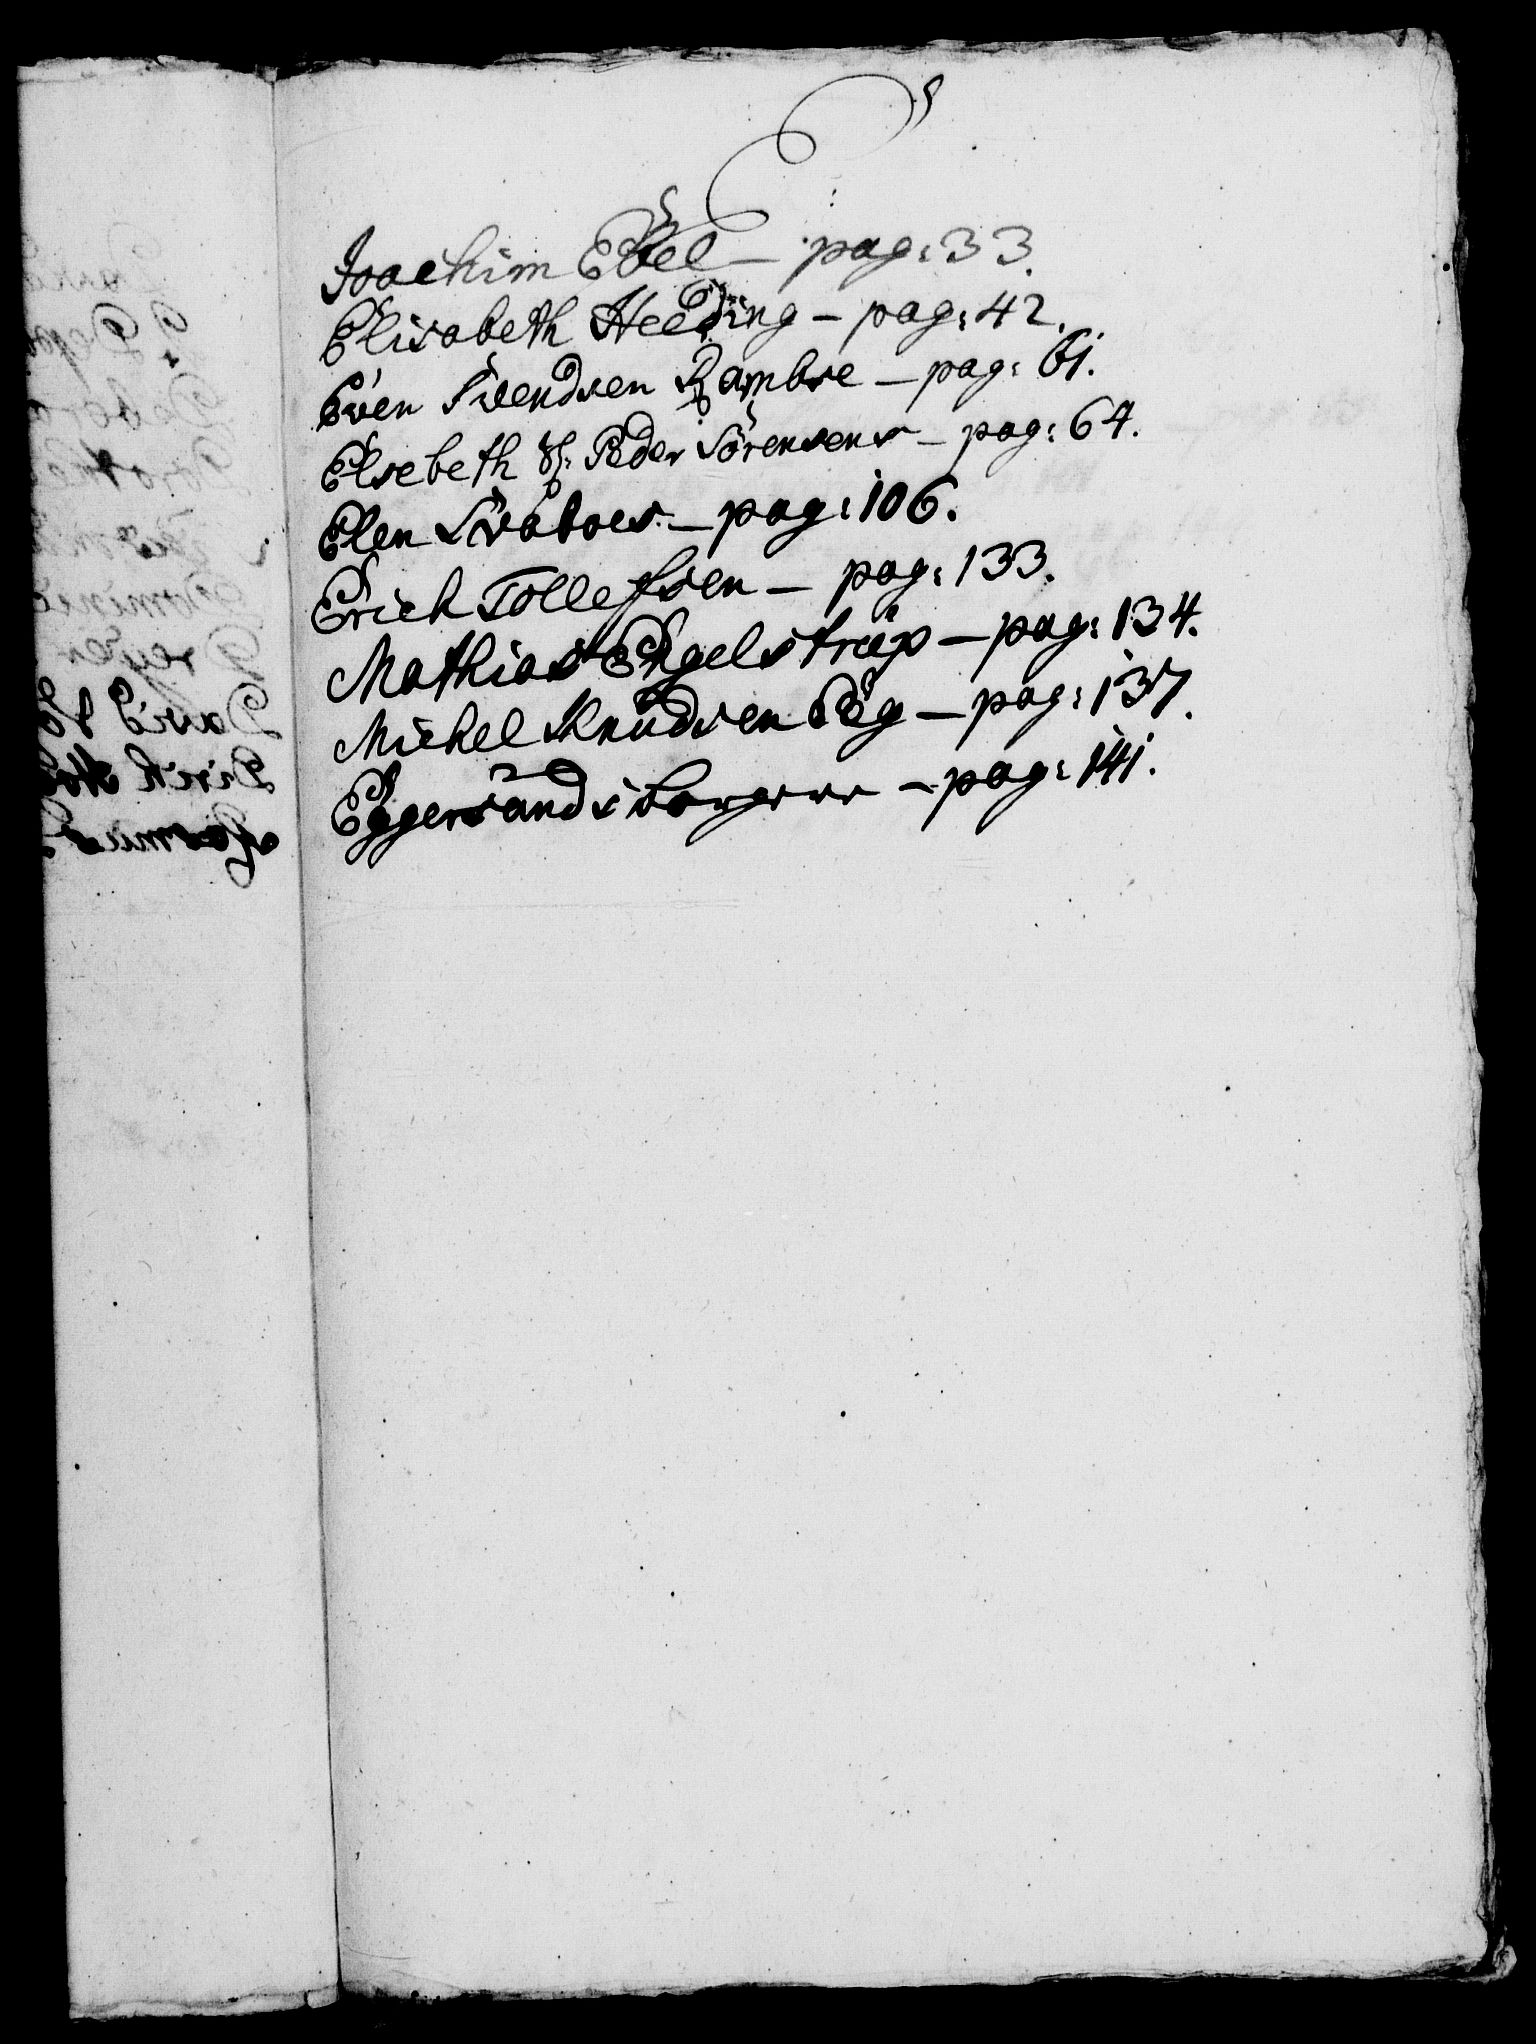 E
Joachim Ebbel – pag: 33.
Elisabeth Heeding – pag: 42.
Even Svendsen Rambre – pag: 61.
Elsebeth Sl: Peder Sörensens – pag: 64.
Elen Svaboes – pag: 106.
Erich Tollefsen – pag: 133.
Mathias Engelstrüp – pag: 134.
Michel Knudsen Eeg – pag: 137.
– pag: 141.